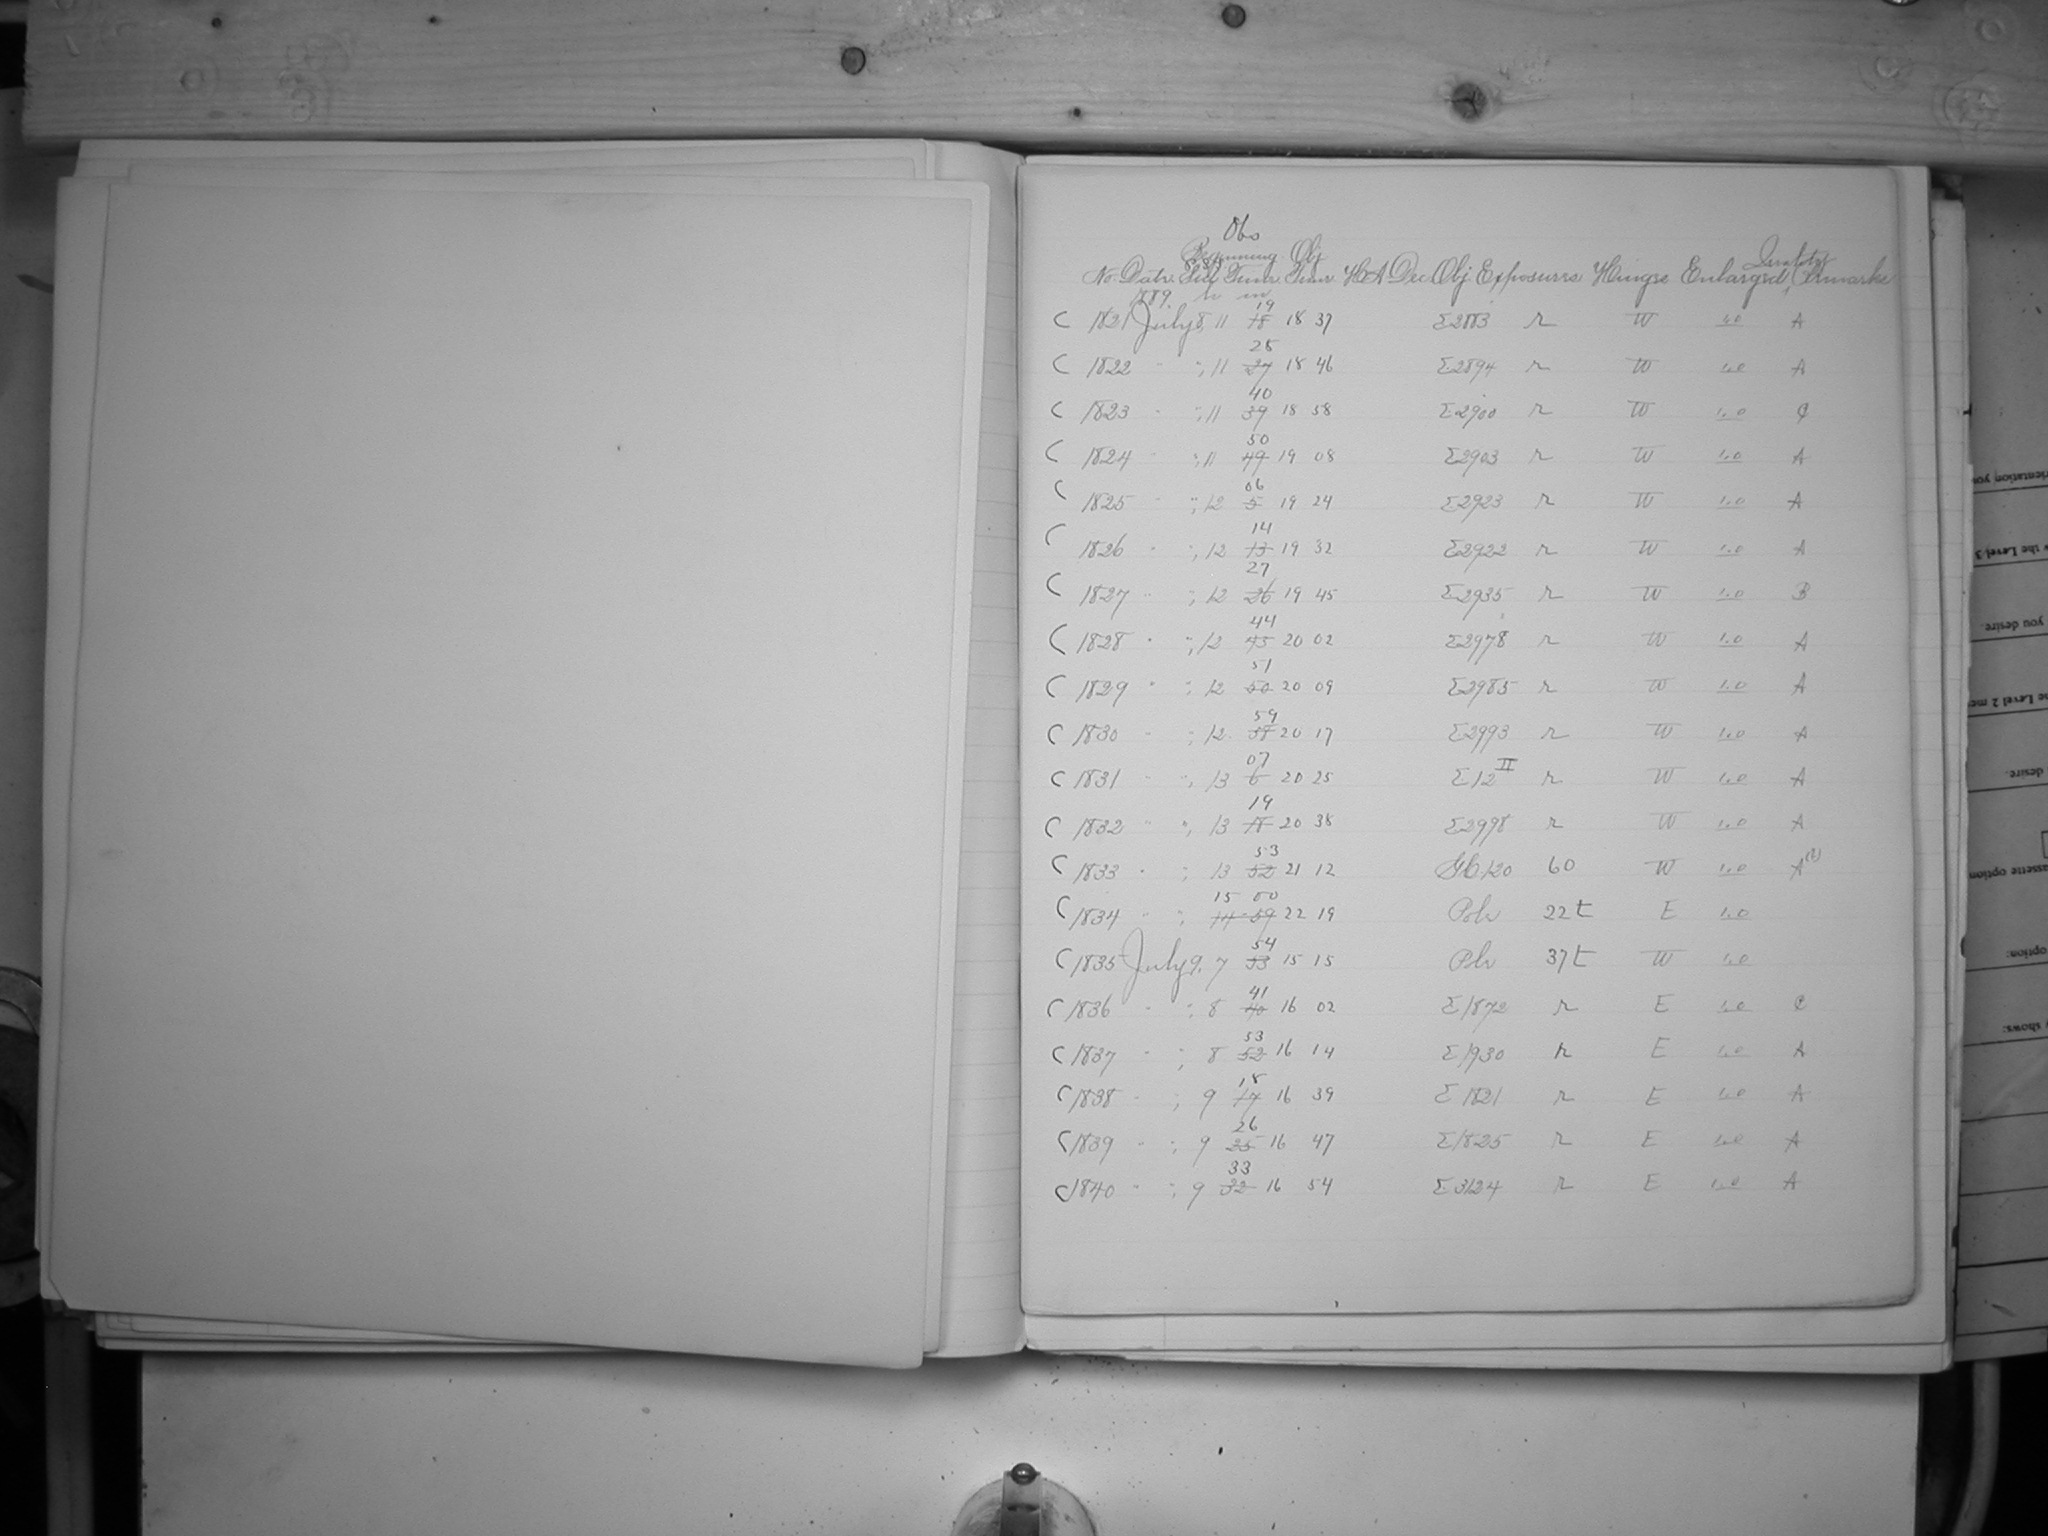 Obs
Beginning Obj Quality
No. Date. Time Time H A Dec. Obj Exposures Hinge Enlarged, Remarks
1889. h m
19
C 1821 July 8, 11 18 18 37 Σ2883 r W 1.0 A
28
C 1822 " ", 11 27 18 46 Σ2894 r W 1.0 A
40
C 1823 " ", 11 39 18 58 Σ2900 r W 1.0 C
50
C 1824 " ", 11 49 19 08 Σ2903 r W 1.0 A
06
C 1825 " ", 12 5 19 24 Σ2923 r W 1.0 A
14
C 1826 " ", 12 13 19 32 Σ2922 r W 1.0 A
27
C 1827 " ", 12 26 19 45 Σ2935 r W 1.0 B
44
C 1828 " ", 12 43 20 02 Σ2978 r W 1.0 A
51
C 1829 " ", 12 50 20 09 Σ2985 r W 1.0 A
59
C 1830 " ", 12 58 20 17 Σ2993 r W 1.0 A
07
C 1831 " ", 13 6 20 25 Σ12 II r W 1.0 A
19
C 1832 " ", 13 18 20 38 Σ2998 r W 1.0 A
53
C 1833 " ", 13 52 21 12 120 60 W 1.0 A
15 00
C 1834 " ", 14 59 22 19 Pole 22t E 1.0
54
C 1835 July 9, 7 53 15 15 Pole 37t W 1.0
41
C 1836 " ", 8 40 16 02 Σ1872 r E 1.0 C
53
C 1837 " ", 8 52 16 14 Σ1930 r E 1.0 A
18
C 1838 " ", 9 17 16 39 Σ1821 r E 1.0 A
26
C 1839 " ", 9 25 16 47 Σ1825 r E 1.0 A
33
C 1840 " ", 9 32 16 54 Σ3124 r E 1.0 A
you desire.
desire.
option:
shows: